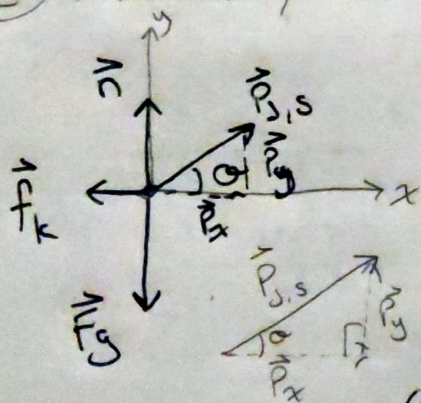 y
n⃗
P⃗J,S
θ
P⃗y
x
f⃗k
P⃗x
F⃗g
P⃗J,S
θ
P⃗y
P⃗x